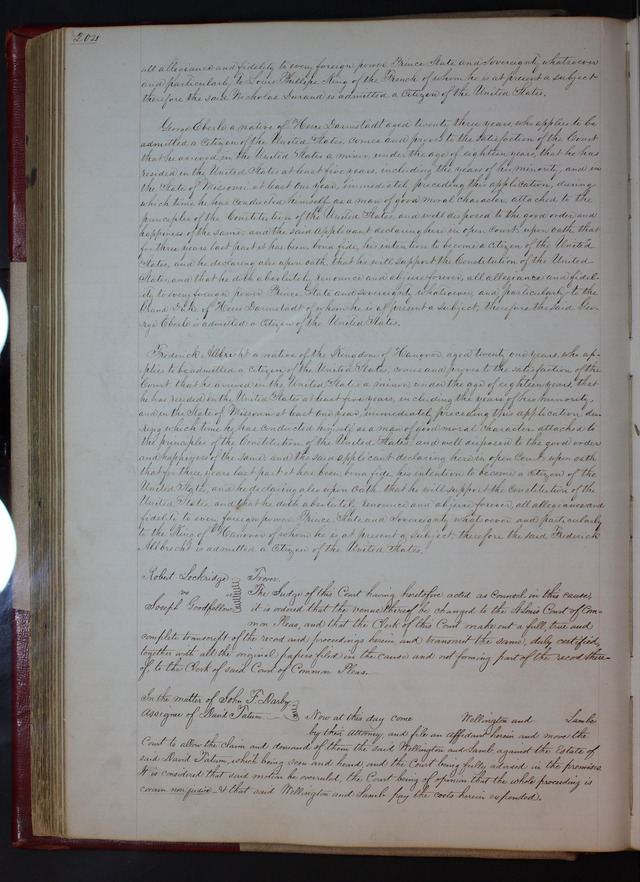 202
all allegiance and fidelity to every foreign power Prince State and Sovereignty whatsoever
and particularly to Louis Phillipe King of the French of whom he is at present a subject
therefore the said Nicholas Durand is admitted a Citizen of the United States.
George Eberle a native of Hesse Darmstadt aged twenty three years, who applies to be
admitted a Citizen of the United States, comes and proves to the satisfaction of the Court
that he arrived in the United States a minor under the age of eighteen years, that he has
resided in the United States at least five years, including the years of his minority, and in
the State of Missouri at least one year, immediately preceding this application, during
which time he has conducted himself as a man of good moral character, attached to the
principles of the Constitution of the United States, and well disposed to the good order and
happiness of the same, and the said applicant declaring here in open Court upon oath that
for three years last past it has been bona fide, his intention to become a citizen of the United
States, and he declaring also upon oath, that he will support the Constitution of the United
States, and that he doth absolutely renounce and abjure forever, all allegiance and fidel-
ity to every foreign power Prince State and Sovereignty whatsoever, and particularly to the
Grand Duke of Hesse Darmstadt of whom he is at present a subject, therefore the said Geor-
ge Eberle is admitted a Citizen of the United States.
Frederick Albrecht a native of the Kingdom of Hanover aged twenty one years, who ap-
plies to be admitted a Citizen of the United States, comes and proves to the satisfaction of the
Court that he arrived in the United States a minor under the age of eighteen years, that
he has resided in the United States at least five years, including the years of his minority,
and in the State of Missouri at least one year, immediately preceding this application, du-
ring which time he has conducted himself as a man of good moral character attached to
the principles of the Constitution of the United States and well disposed to the good order
and happiness of the same and the said applicant declaring here in open Court upon oath
that for three years last past it has been bona fide his intention to become a citizen of the
United States, and he declaring also upon oath that he will support the Constitution of the
United States and that he doth absolutely renounce and abjure forever, all allegiance and
fidelity to every foreign power Prince State and Sovereignty whatsoever and particularly
to the King of Hanover of whom he is at present a subject therefore the said Frederick
Albrecht is admitted a Citizen of the United States.
Robert Lockridge Trover.
vs The Judge of this Court having heretofore acted as Counsel in this cause,
Joseph Goodfellow it is ordered that the venue thereof be changed to the St Louis Court of Com-
mon Pleas, and that the Clerk of this Court make out a full, true and
complete transcript of the record and proceedings herein and transmit the same, duly certified,
together with all the original papers filed in the cause and not forming part of the record there-
of, to the Clerk of said Court of Common Pleas.
In the matter of John F. Darby
Assignee of David Tatum Now at this day come Wellington and Lamb
by their Attorney, and file an Affidavit herein and move the
Court to allow the claim and demand of them the said Wellington and Lamb against the Estate of
said David Tatum, which being seen and heard and the Court being fully advised in the premises
It is considered that said motion be overruled, the Court being of opinion that the whole proceeding is
coram non judice & that said Wellington and Lamb pay the costs herein expended.